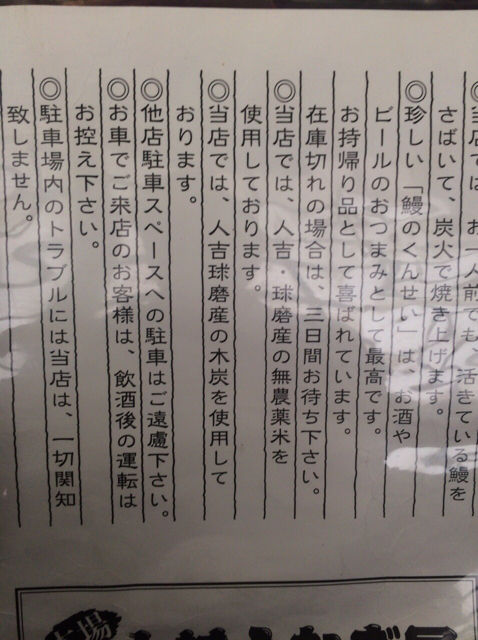 ◎当店では、お一人前でも、活きている鰻を
さばいて、炭火で焼き上げます。
◎珍しい「鰻のくんせい」は、お酒や
ビールのおつまみとして最高です。
お持帰り品として喜ばれています。
在庫切れの場合は、三日間お待ち下さい。
◎当店では、人吉・球磨産の無農薬米を
使用しております。
◎当店では、人吉球磨産の木炭を使用して
おります。
◎他店駐車スペースへの駐車はご遠慮下さい。
◎お車でご来店のお客様は、飲酒後の運転は
お控え下さい。
◎駐車場内のトラブルには当店は、一切関知
致しません。